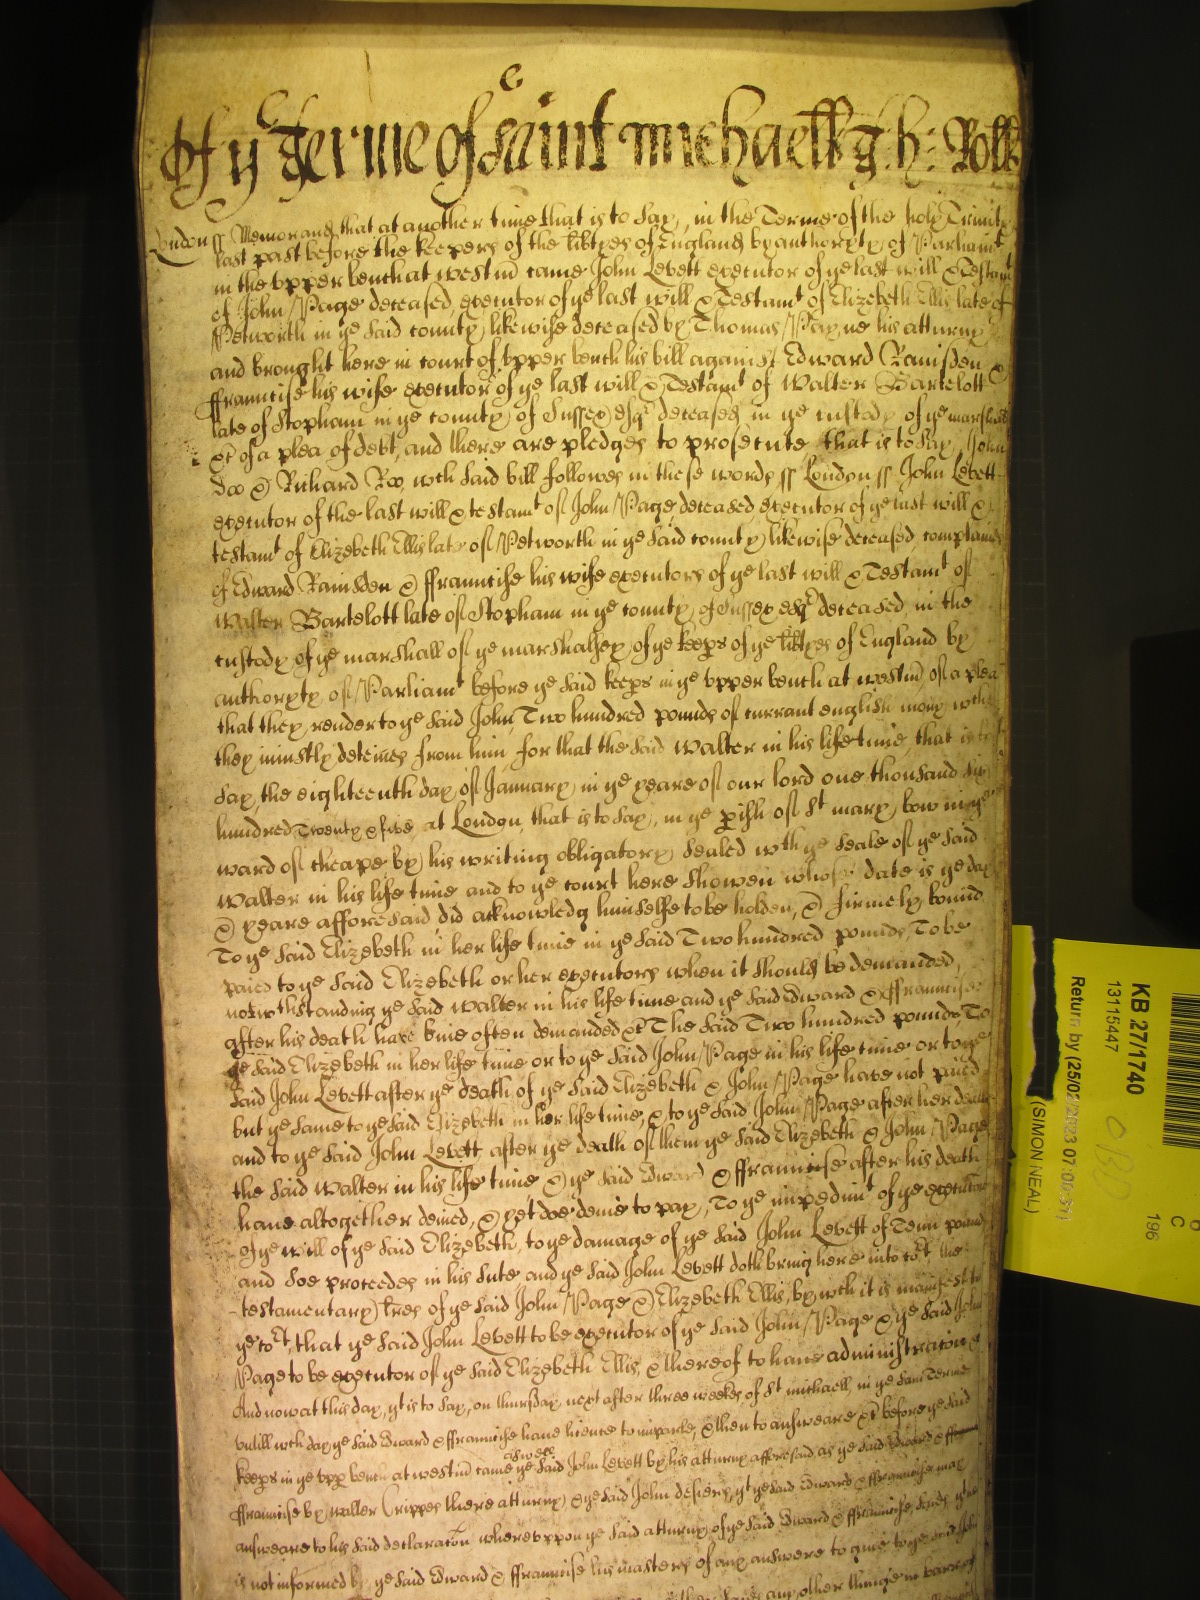 Of ye Terme of Saint Michaell
London ss Memorand that at another time that is to say, in the Terme of the holy Trinity
last past before the keepers of the libtyes of England by authoryty of Parliamt
in the upper bench at westm came John Levett executor of ye last will & Testamt
of John Page deceased, executor of ye last will & Testamt of Elizebeth Ellis late of
Petworth in ye said county likewise deceased by Thomas Payne his atturny
and brought here in court of upper bench his bill against Edward Ramsden &
ffranncise his wife executors of ye last will & Testamt of Walter Bartelott
late of Stopham in ye county of Sussex esqr deceased in ye custody of ye marshall
&c of a plea of debt, and there are pledges to prosecute, that is to say, John
Doo & Richard Roo, wch said bill followes in these words ss London ss John Levett
executor of the last will & testamt of John Page deceased executor of ye last will &
testamt of Elizebeth Ellis late of Petworth in ye said county likewise deceased, complaines
of Edward Ramsden & ffranncise his wife executors of ye last will & Testamt of
Walter Bartelott late of Stopham in ye county of Sussex esqr deceased, in the
custody of ye marshall of ye marshalsey of ye keeps of ye libtyes of England by
authoryty of Parliamt before ye said keeps in ye upper bench at westm, of a plea
that they render to ye said John Two hundred pounds of currant english mony wch
they iniustly deteines from him, for that the said Walter in his life time, that is to
say, the eighteenth day of January in ye yeare of our lord one thousand six
hundred Twenty & five at London, that is to say, in ye pish of St mary bow in ye
ward of cheape by his writing obligatory sealed wth ye seale of ye said
Walter in his life time and to ye court here showen whose date is ye day
& yeare afforesaid did acknowledg himselfe to be holden, & firmely bound
To ye said Elizebeth in her life time in ye said Two hundred pounds, To be
paied to ye said Elizebeth or her executors when it should be demanded,
notwthstanding ye said Walter in his life time and ye said Edward & ffranncise
after his death have bine often demanded &c The said Two hundred pounds, To
ye said Elizebeth in her life time or to ye said John Page in his life time or to ye
said John Levett after ye death of ye said Elizebeth & John Page have not paied
but ye same to ye said Elizebeth in her life time, & to ye said John Page after her death
and to ye said John Levett after ye death of them ye said Elizebeth & John Page
the said Walter in his life time & ye said Edward & ffranncise after his death
haue altogether denied, & yet doe denie to pay, To ye impedimt of ye execution
of ye will of ye said Elizebeth, to ye damage of ye said John Levett of Tenn pounds
and soe procedes in his sute, and ye said John Levett doth bring here into cot, the
testamentary lres of ye said John Page & Elizebeth Ellis, by wch it is manifest to
ye cot, that ye said John Levett to be executor of ye said John Page & ye said John
Page to be executor of ye said Elizebeth Ellis, & thereof to haue administracion &c
And now at this day, yt is to say, on thursday next after three weekes of St michaell, in ye same Terme
vntill wch day ye said Edward & ffranncise haue licence to imparle, & then to answeare &c before ye said
keeps in ye vpp bench at westm came aswell ye said John Levett by his atturny afforesaid as ye said Edward &
ffranncise by Walter Cripps there atturny, & ye said John desiers, yt ye said Edward & ffranncise may
answeare to his said declaracon wherevppon ye said atturny of ye said Edward & ffranncise, saieth yt he
is not informed by ye said Edward & ffranncise his masters of any answere to giue to ye said John
any other thinge in barr of
KB 27/1740
13115447
Return by (25/02/2023 07:00:31)
(SIMON NEAL)
OBD
C
196